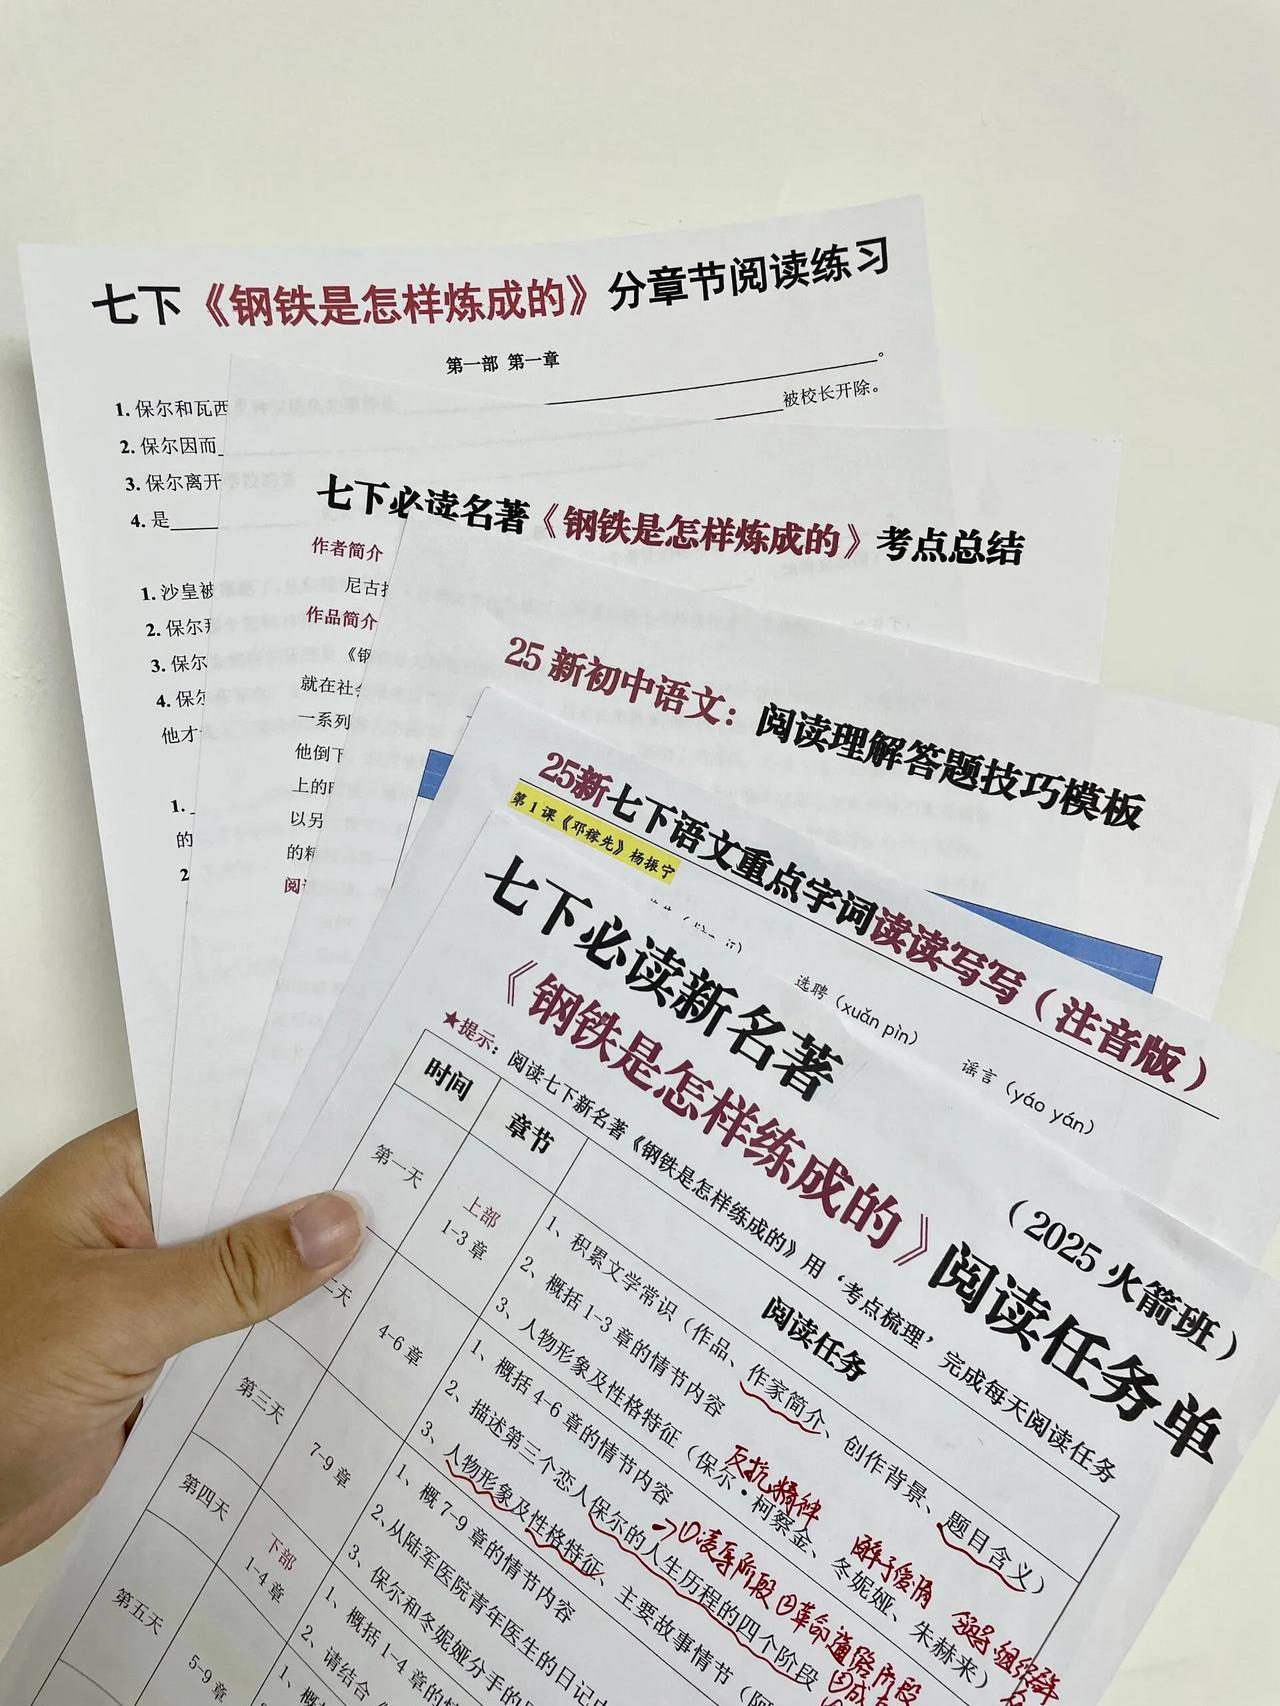 七下《钢铁是怎样炼成的》分章节阅读练习
第一部 第一章
1. 保尔和瓦西
。
2. 保尔因而
被校长开除。
3. 保尔离开
4. 是
1. 沙皇被
2. 保尔
3. 保尔
4. 保尔
他才
1.
的
2
七下必读名著《钢铁是怎样炼成的》考点总结
作者简介
尼古
作品简介
《钢
就在社会
一系列
他倒下
上的时
以另
的精
阅读
25 新初中语文：阅读理解答题技巧模板
25新七下语文重点字词读读写写（注音版）
第1课《邓稼先》杨振宁
选聘（xuǎn pìn）
谣言（yáo yán）
七下必读新名著
（2025 火箭班）
《钢铁是怎样练成的》阅读任务单
★提示：阅读七下新名著《钢铁是怎样练成的》用‘考点梳理’完成每天阅读任务
时间
章节
阅读任务
第一天
上部
1-3 章
1、积累文学常识（作品、作家简介、创作背景、题目含义）
2、概括 1-3 章的情节内容
3、人物形象及性格特征（保尔·柯察金、冬妮娅、朱赫来）
反抗精神
二天
4-6 章
1、概括 4-6 章的情节内容
2、描述第三个恋人保尔的人生历程的四个阶段
3、人物形象及性格特征、主要故事情节（阿
第三天
7-9 章
1、概 7-9 章的情节内容
2、从陆军医院青年医生的日记
3、保尔和冬妮娅分手的
第四天
下部
1-4 章
1、概括 1-4 章的情
2、请结合《
第五天
5-9 章
1、概